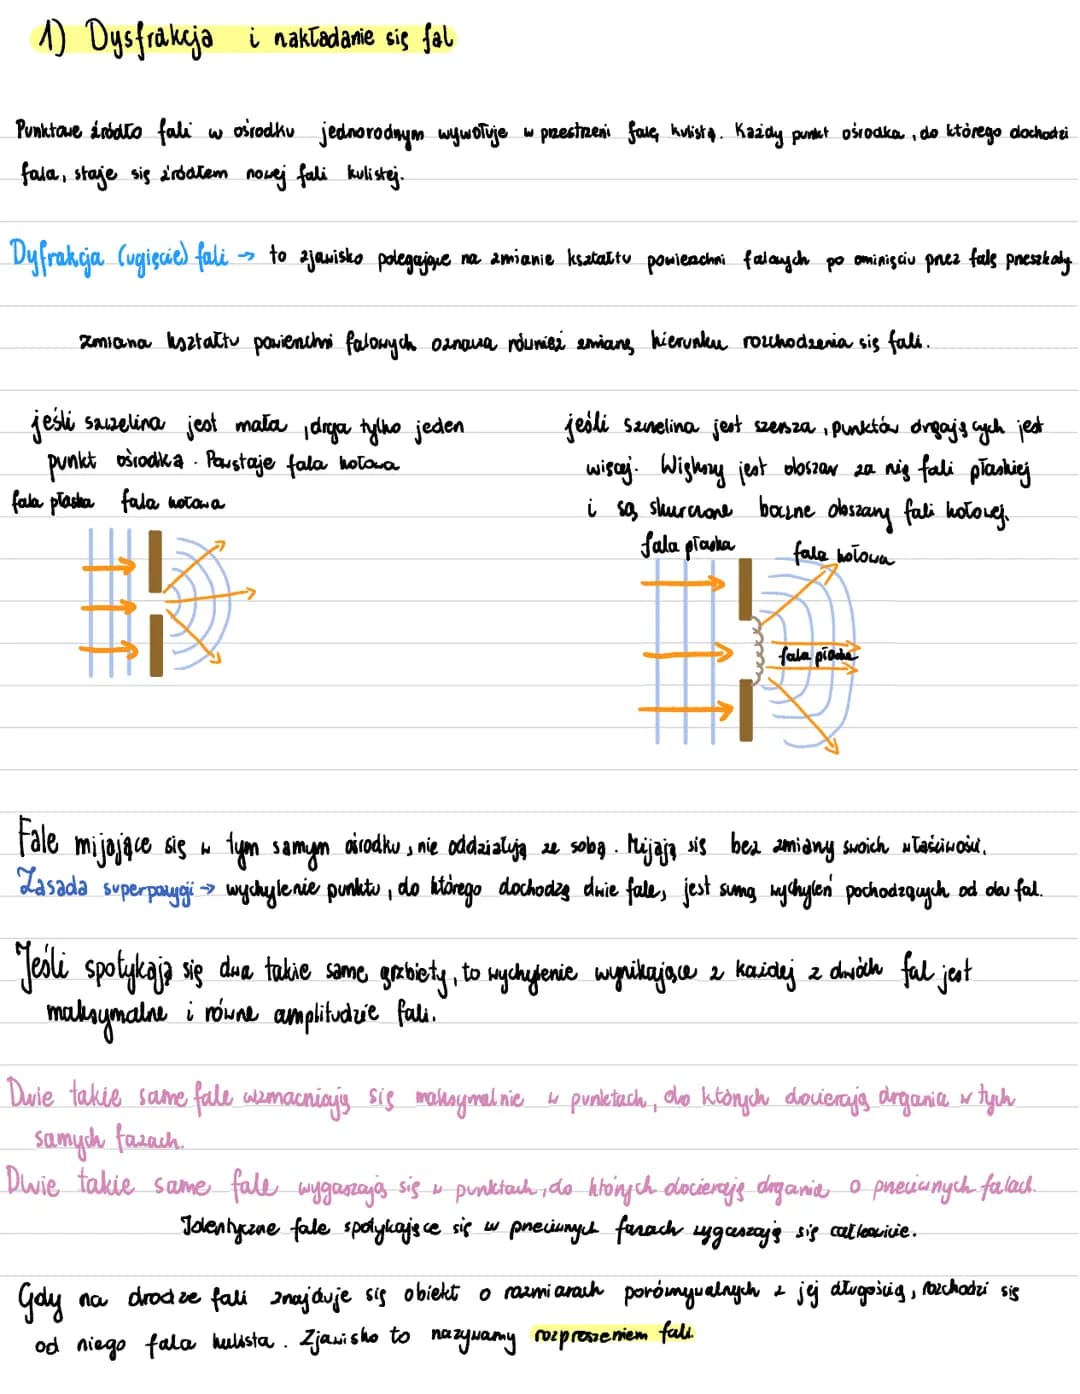 1) Dysfrakcja i nakładanie się fal
Punktowe źródło fali w ośrodku jednorodnym wywołuje w przestrzeni falę kulistą. Każdy punkt ośrodka, do którego dochodzi
fala, staje się źródłem nowej fali kulistej.
Dyfrakcja (ugięcie) fali → to zjawisko polegające na zmianie kształtu powierzchni falowych po ominięciu przez falę przeszkody
zmiana kształtu powierzchni falowych oznacza również zmianę kierunku rozchodzenia się fali.
jeśli szczelina jest mała, drga tylko jeden
punkt ośrodka. Powstaje fala kołowa
fala płaska fala kołowa
jeśli szczelina jest szersza, punktów drgających jest
więcej. Większy jest obszar za nią fali płaskiej
i są skurczone boczne obszary fali kołowej.
fala płaska fala kołowa
fala płaska
Fale mijające się w tym samym ośrodku, nie oddziałują ze sobą. Mijają się bez zmiany swoich właściwości.
Zasada superpozycji → wychylenie punktu, do którego dochodzą dwie fale, jest sumą wychyleń pochodzących od obu fal.
Jeśli spotykają się dwa takie same grzbiety, to wychylenie wynikające z każdej z dwóch fal jest
maksymalne i równe amplitudzie fali.
Dwie takie same fale wzmacniają się maksymalnie w punktach, do których docierają drgania w tych
samych fazach.
Dwie takie same fale wygaszają się w punktach, do których docierają drgania o przeciwnych falach.
Identyczne fale spotykające się w przeciwnych fazach wygaszają się całkowicie.
Gdy na drodze fali znajduje się obiekt o rozmiarach porównywalnych z jej długością, rozchodzi się
od niego fala kulista. Zjawisko to nazywamy rozproszeniem fali.